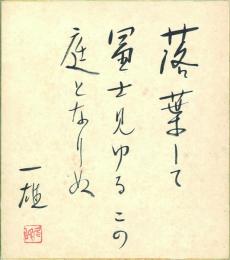 落葉して
冨士見ゆるこの
庭となりぬ
一雄